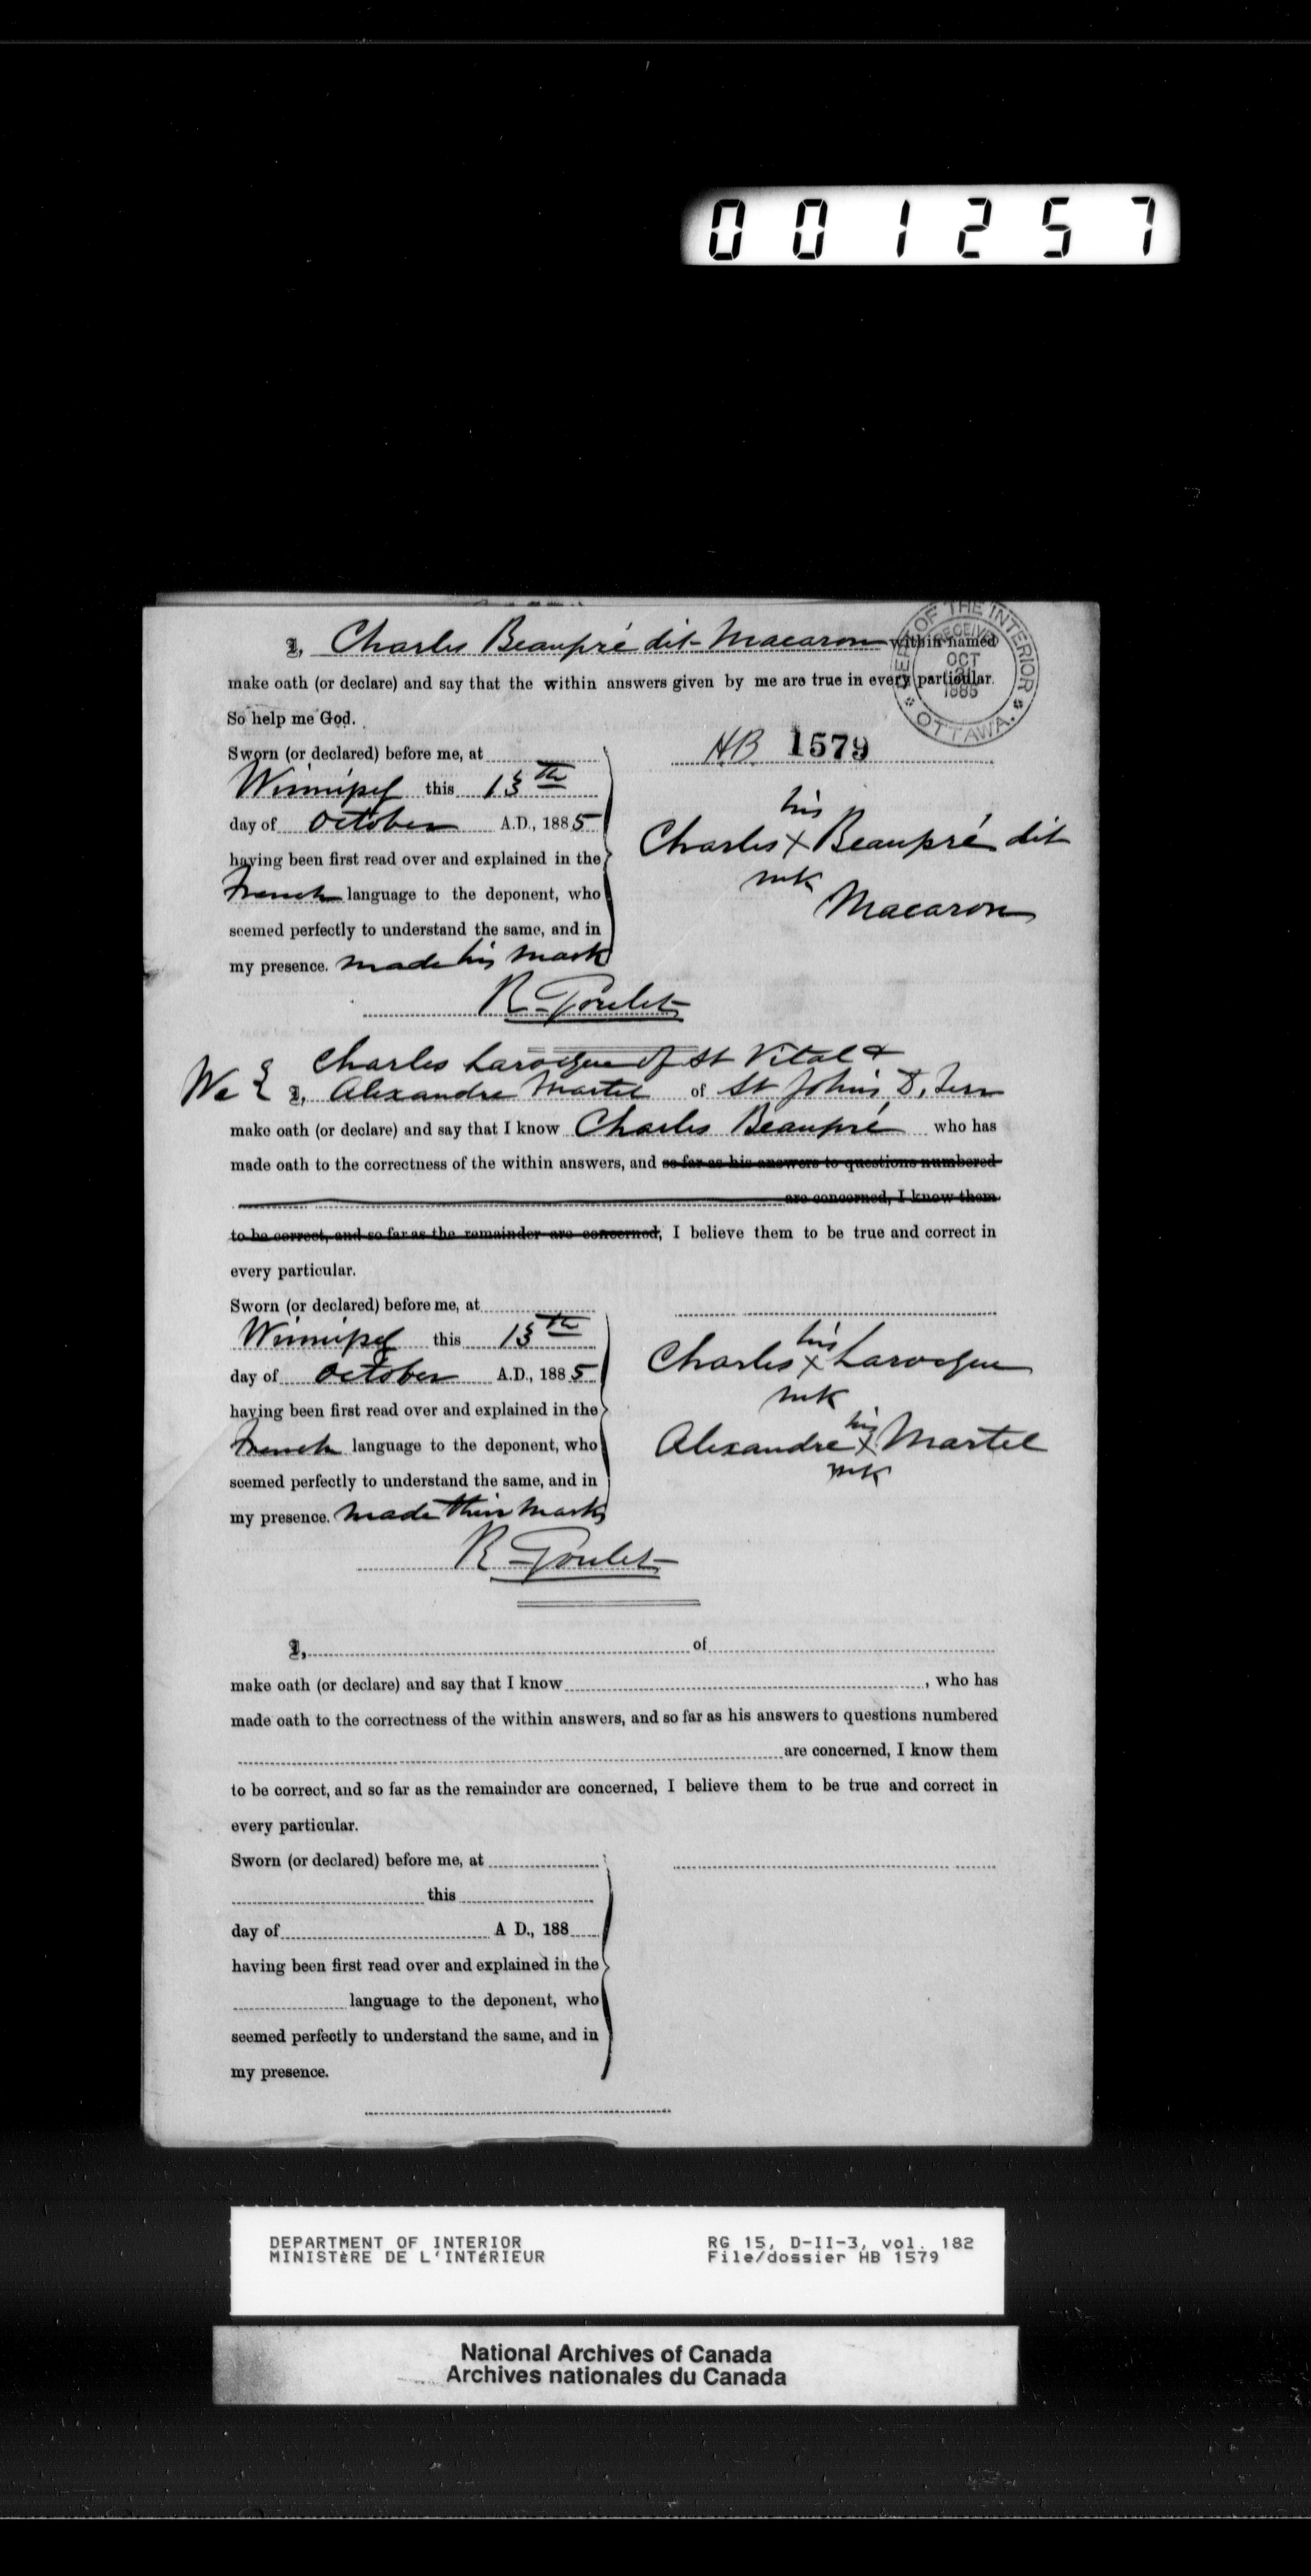 001257
I, Charles Beaupré dit Macaron within named
make oath (or declare) and say that the within answers given by me are true in every particular.
So help me God.
DEPT. OF THE INTERIOR
RECEIVED
OCT
1885
OTTAWA.
HB 1579
Sworn (or declared) before me, at
Winnipeg this 13th
day of October A.D., 1885
having been first read over and explained in the
French language to the deponent, who
seemed perfectly to understand the same, and in
my presence. made his mark
his
Charles X Beaupré dit
mk
Macaron
R Goulet
Charles Larocque of St Vital &
We I, Alexandre Martel of St Johns D. Terr
make oath (or declare) and say that I know Charles Beaupré who has
made oath to the correctness of the within answers, and so far as his answers to questions numbered
are concerned, I know them
to be correct, and so far as the remainder are concerned, I believe them to be true and correct in
every particular.
Sworn (or declared) before me, at
Winnipeg this 13th
day of October A.D., 1885
having been first read over and explained in the
French language to the deponent, who
seemed perfectly to understand the same, and in
my presence. made their marks
his
Charles X Larocque
mk
his
Alexandre X Martel
mk
R Goulet
I, of
make oath (or declare) and say that I know , who has
made oath to the correctness of the within answers, and so far as his answers to questions numbered
are concerned, I know them
to be correct, and so far as the remainder are concerned, I believe them to be true and correct in
every particular.
Sworn (or declared) before me, at
this
day of A D., 188
having been first read over and explained in the
language to the deponent, who
seemed perfectly to understand the same, and in
my presence.
DEPARTMENT OF INTERIOR
MINISTÈRE DE L'INTÉRIEUR
RG 15, D-II-3, vol. 182
File/dossier HB 1579
National Archives of Canada
Archives nationales du Canada